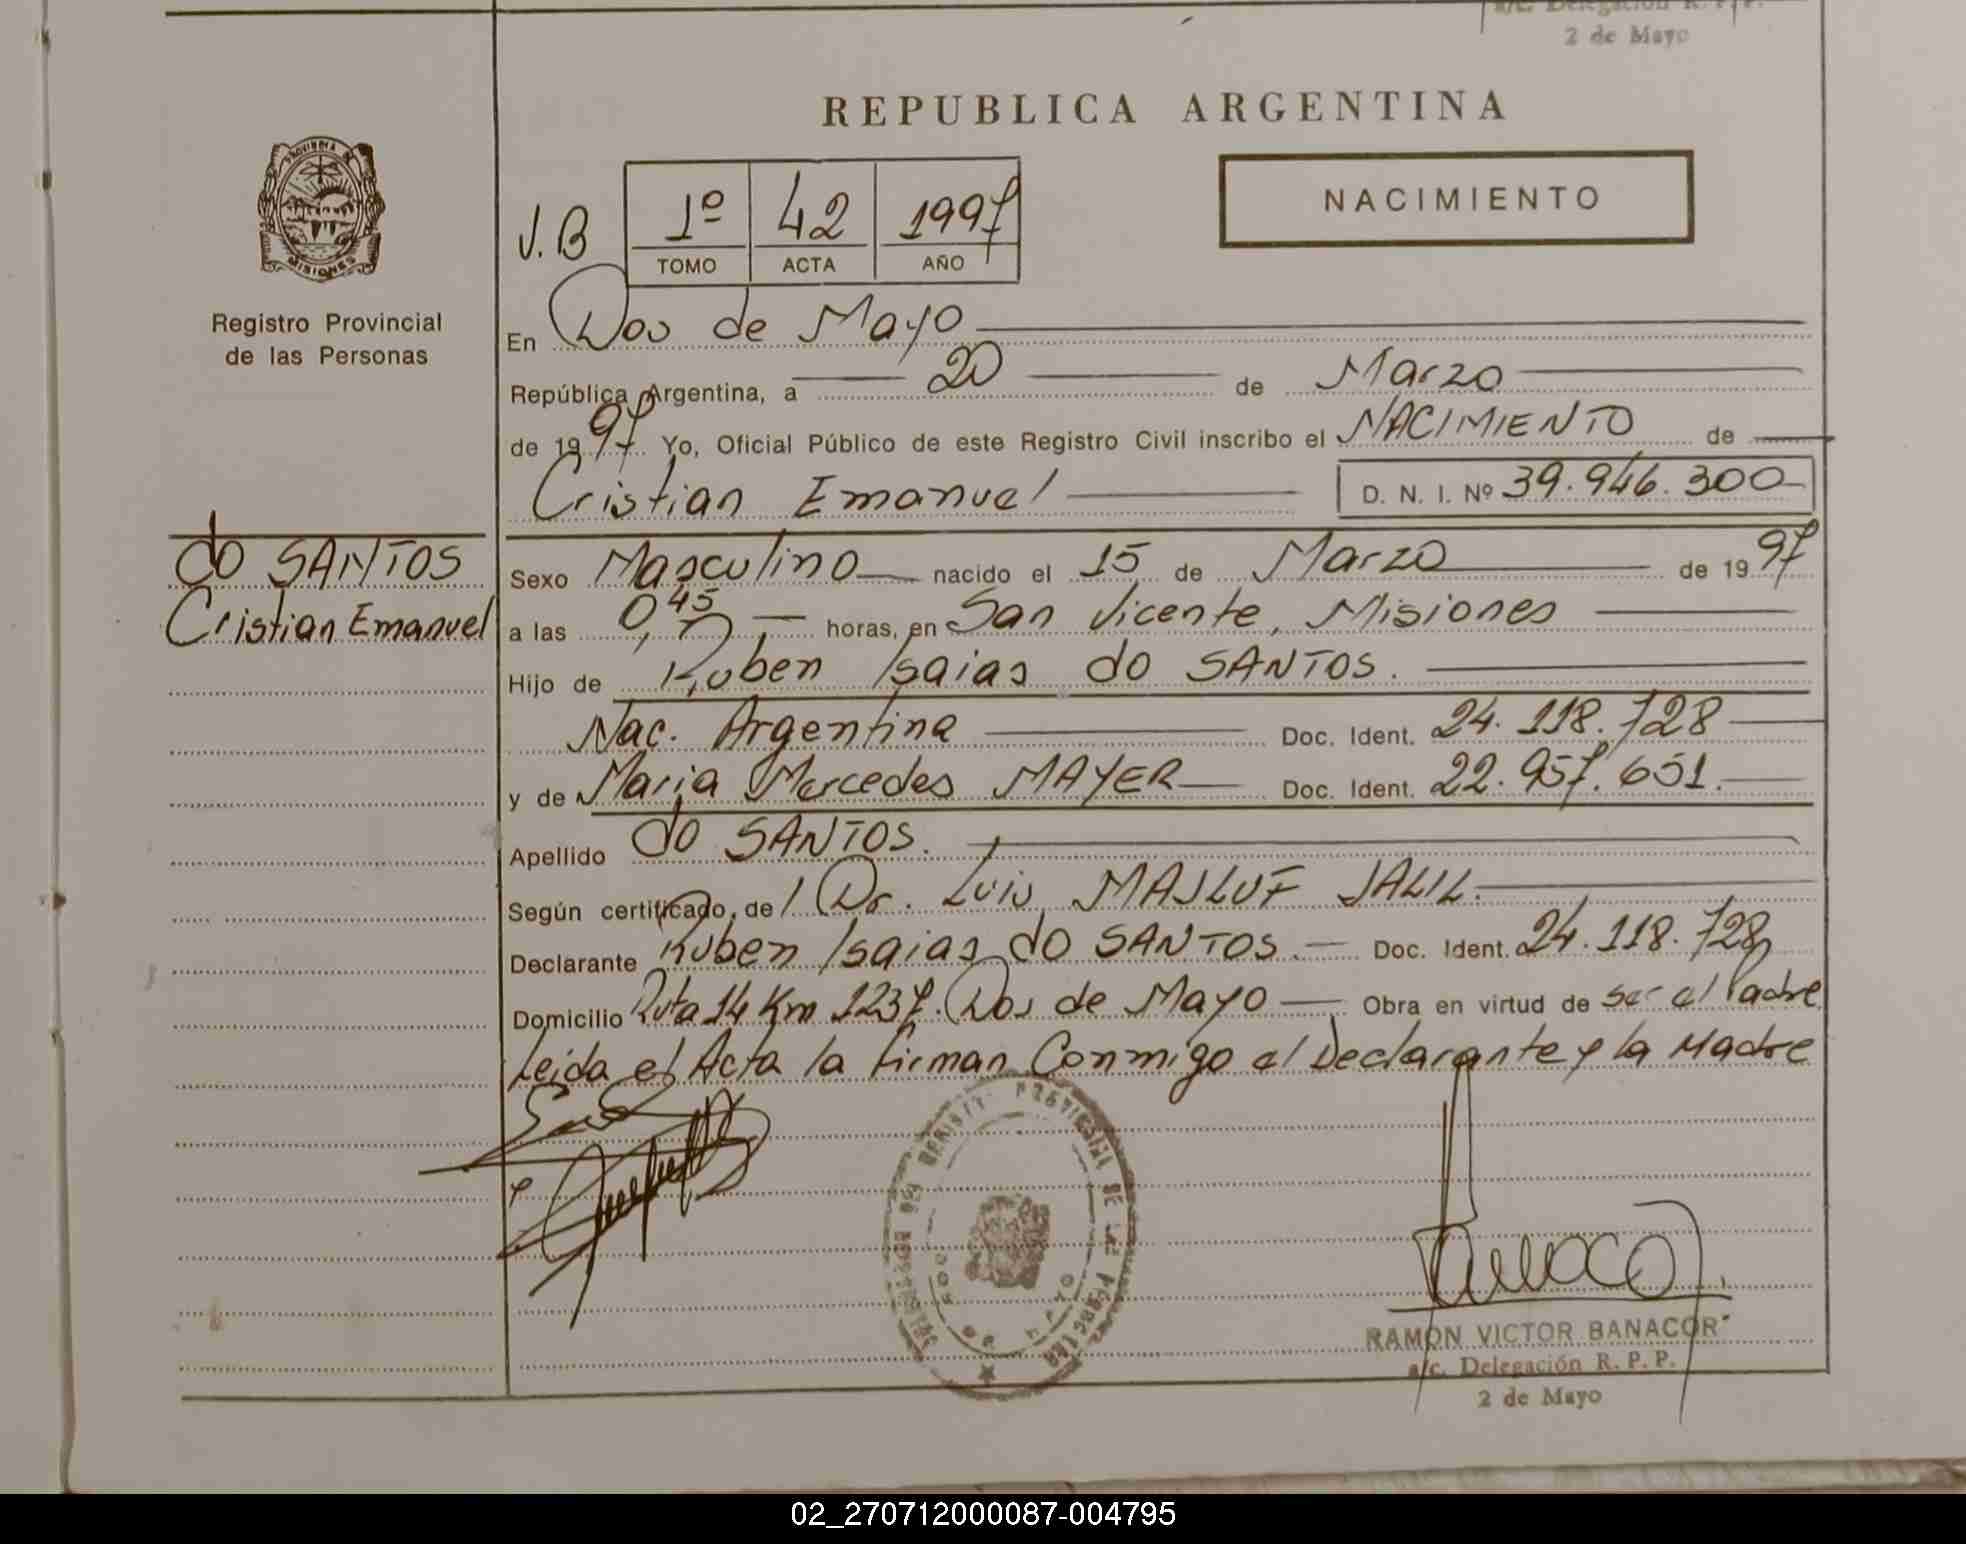 a/c. Delegación R. P. P.
2 de Mayo
REPUBLICA ARGENTINA
PROVINCIA DE
MISIONES
Registro Provincial
de las Personas
NACIMIENTO
J.B
1º 42 1997
TOMO ACTA AÑO
En Dos de Mayo
República Argentina, a 20 de Marzo
de 1997 Yo, Oficial Público de este Registro Civil inscribo el NACIMIENTO de
Cristian Emanuel D. N. I. Nº 39.946.300
do SANTOS
Cristian Emanuel
Sexo Masculino nacido el 15 de Marzo de 1997
a las 0,45 horas, en San Vicente, Misiones
Hijo de Ruben Isaias do SANTOS.
Nac. Argentina Doc. Ident. 24.118.728
y de Maria Mercedes MAYER Doc. Ident. 22.957.651.
Apellido do SANTOS.
Según certificado, de l Dr. Luis MASLUF JALIL.
Declarante Ruben Isaias do SANTOS. Doc. Ident. 24.118.728
Domicilio Ruta 14 Km 1237. Dos de Mayo Obra en virtud de ser el Padre
Leida el Acta la firman Conmigo el Declarante y la Madre
PROVINCIAL DE LAS PERSONAS
DOS DE MAYO
RAMON VICTOR BANACOR
a/c. Delegación R. P. P.
2 de Mayo
02_270712000087-004795